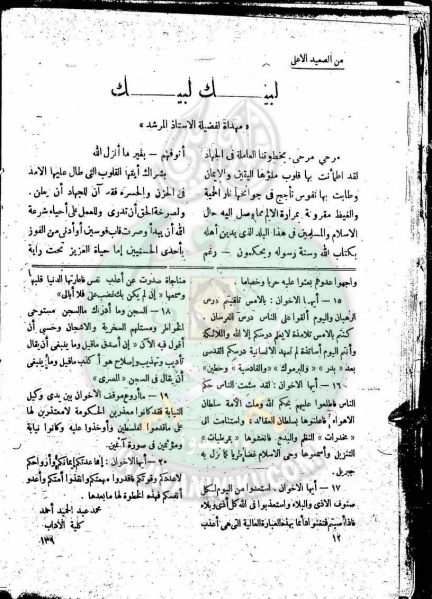 من الصعيد الأعلى
لبيـــك لبيـــك
« مهداة لفضيلة الاستاذ المرشد »
مرحى مرحى . بخطوتنا العاملة في الجهاد
لقد اطمأنت بها قلوب ملؤها اليقين والايمان
وطابت بها نفوس تأجج في جوانحها نار الحمية
والغيظ مقرونة بمرارة الألم مما وصل اليه حال
الاسلام والمسلمين في هذا البلد الذي يدين أهله
بكتاب الله وسنة رسوله ويحكمون — رغم
أنوفهم — بغير ما أنزل الله
بشراك أيتها القلوب التي طال عليها الامد
في الحزن والحسرة فقد آن للجهاد أن يعلن .
ولصرخة الحق أن تدوى وللعمل على أحياء شرعة
الله أن يبدأ وصرت قاب قوسين أو أدنى من الفوز
بأحدى الحسنيين إما حياة العزيز تحت راية
واجهوا عدوهم بعثوا عليه حربا وخصاما .
١٥ — أيها الاخوان : بالامس تلقيتم درس
الرهبان واليوم ألقوا على الناس دروس الفرسان .
كنتم بالامس تلامذة لا يعلم درسكم إلا الله والملائكة
وأنتم اليوم أساتذة لم تعهد الانسانية درسكم القدسى
بعد « بدر » « واليرموك » « والقادسية » « وحطين »
١٦ — أيها الاخوان : لقد سئمت الناس حكم
الناس فاطلعوا عليهم بحكم الله وملت الأمة سلطان
الاهواء فاعلنوها بسلطان العقائد . واستنامت الى
« مخدرات » النظم والبدع . فانعشوها « بمرطبات »
التنزيل وأسمعوها وحى الاسلام غضا طريا كما نزل به
جبريل .
١٧ — أيها الاخوان . استعدوا من اليوم لكل
صنوف الأذى والبلاء واستعذبوا فى الله كل أذى وبلاء
فاذا أصبتم فتغنوا دائما بهذه العبارة الغالية التى هى أعذب
١٢
مناجاة صدرت عن أعذب نفس فعارتها الدنيا قلبها
وسمعها « إن لم يكن بك غضب على فلا أبالى »
١٨ — السجن وما أدراك ما السجن مستوحى
الخواطر ومستلهم السخرية والاشجان وحسبى أن
أقول فيه الآن « إن أصدق ماقيل وما ينبغى أن يقال
تأديب وتهذيب وإصلاح هو أكذب ماقيل وما ينبغى
أن يقال فى السجن « المصرى »
١٩ — ما أروع موقف الاخوان بين يدى وكيل
النيابة فقد كانوا معذرين الحكومة لا معتذرين لها
على ماقدموا لفلسطين وأوخذوا عليه وكانوا نيابة
ومؤتمين فى صورة آثمين .
٢٠ — أيها الاخوان : هاعدتكم إيمانكم وأزواحكم
لاعددكم وقوتكم فاقدروا مهمتكم وانقذوا أمتكم وأعدوا
أنفسكم فهذه الخطوة لها مابعدها
محمد عبد الحميد أحمد
كلية الآداب
١٣٩